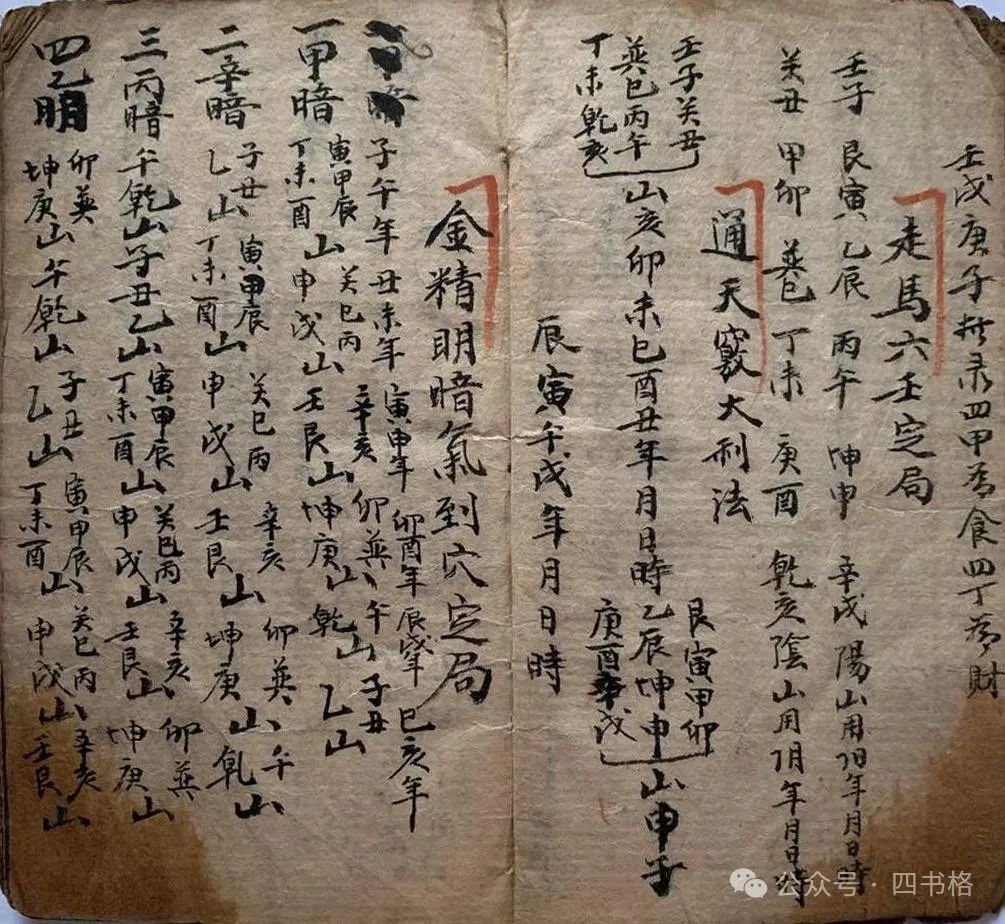 壬戌庚子摧录四甲為食四丁為財
走馬六壬定局
壬子 艮寅 乙辰 丙午 坤申 辛戌陽山用阳年月日時
癸丑 甲卯 巽巳 丁未 庚酉 乾亥陰山用阴年月日時
通天竅大利法
壬子癸丑
巽巳丙午
丁未乾亥
山亥卯未巳酉丑年月日時
艮寅甲卯
乙辰坤申
庚酉辛戌
山申子
辰寅午戌年月日時
金精明暗氣到穴定局
子午年 丑未年 寅申年 卯酉年 辰戌年 巳亥年
一甲暗 寅甲辰丁未酉山 癸巳丙申戌山 辛亥壬艮山 卯巽坤庚山 午乾山 子丑乙山
二辛暗 子丑乙山 寅甲辰丁未酉山 癸巳丙申戌山 辛亥壬艮山 卯巽坤庚山 午乾山
三丙暗 午乾山 子丑乙山 寅甲辰丁未酉山 癸巳丙申戌山 辛亥壬艮山 卯巽坤庚山
四乙明 卯巽坤庚山 午乾山 子丑乙山 寅甲辰丁未酉山 癸巳丙申戌山 辛亥壬艮山
公众号·四书格